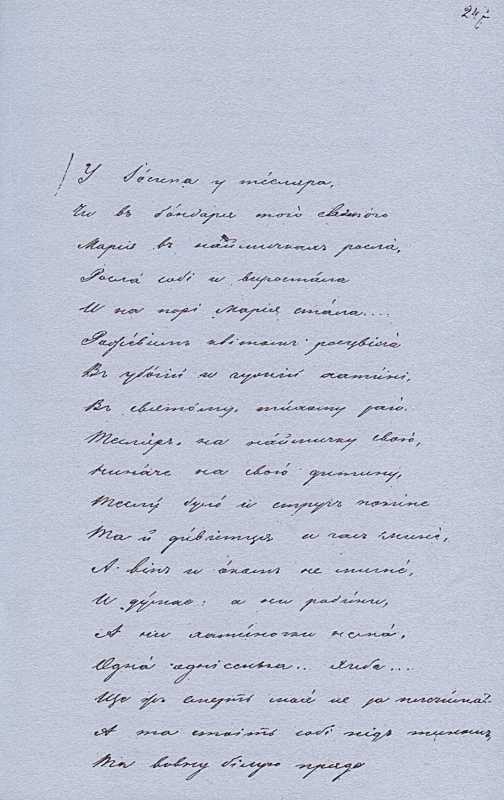 247
У Іо́сипа у те́сляра,
Чи въ бо́ндаря того̀ святого
Марія въ наймичкахъ росла́,
Росла́ собі и виростала
И на порі Марія ста́ла....
Рожевымъ квітомъ розцвіла́
Въ убо́гій и чужій хатині,
Въ свято́му, тихому раю.
Тесля́ръ, на на́ймичку свою,
Нина́че на свою дитину,
Теслу́ було́ й стругъ покине
Та й ди́витця и часъ мине́,
А він и о́комъ не мигне́,
И ду́має: а ни роди́ни,
А ни хати́ночки нема́,
Одна́ однісенька.. Хиба...
Ще жъ смерть моя́ не за плечима?.
А та стоі́ть собі підъ тиномъ,
Та вовну білую пряде